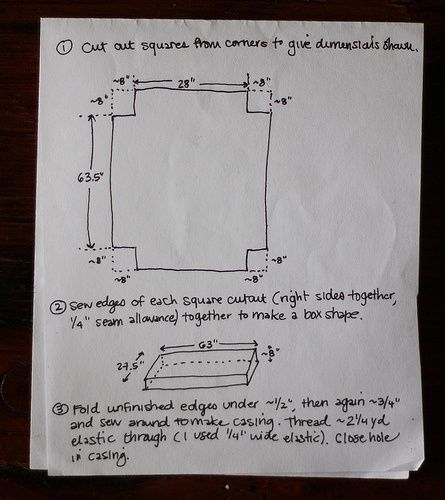 ① Cut out squares from corners to give dimensions shown.
~8" 28" ~8"
~8" ~8"
63.5"
~8" ~8"
~8" ~8"
② Sew edges of each square cutout (right sides together,
1/4" seam allowance) together to make a box shape.
63"
27.5" ~8"
③ Fold unfinished edges under ~1/2", then again ~3/4"
and sew around to make casing. Thread ~2 1/4 yd
elastic through (I used 1/4" wide elastic). Close hole
in casing.